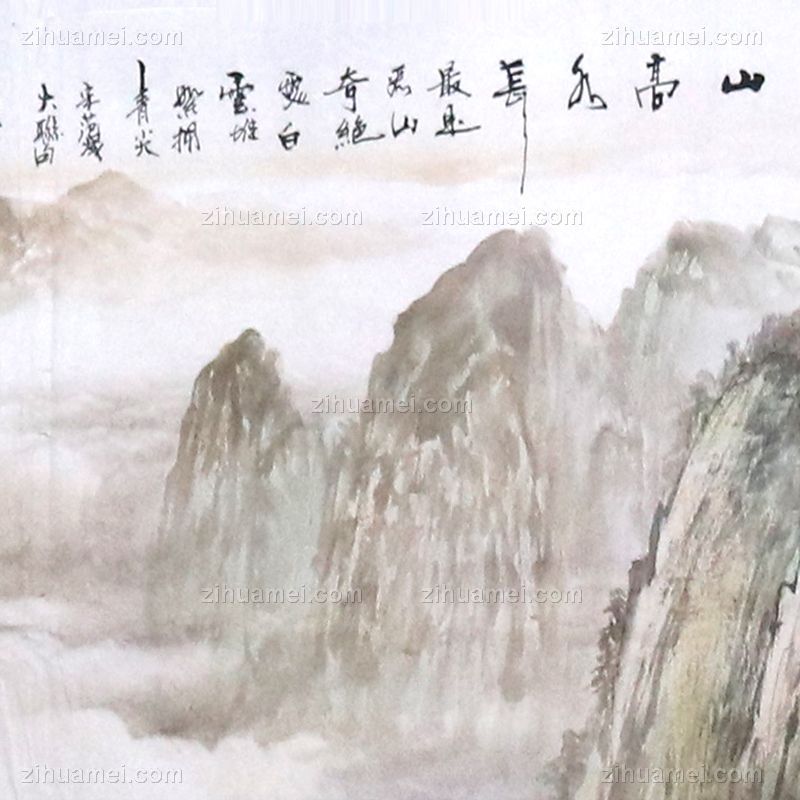 山高水長
最是
山
奇絕
處白
雲堆
擁
青尖
大聯句
zihuamei.com
zihuamei.com
zihuamei.com
zihuamei.com
zihuamei.com
zihuamei.com
zihuamei.com
zihuamei.com
zihuamei.com